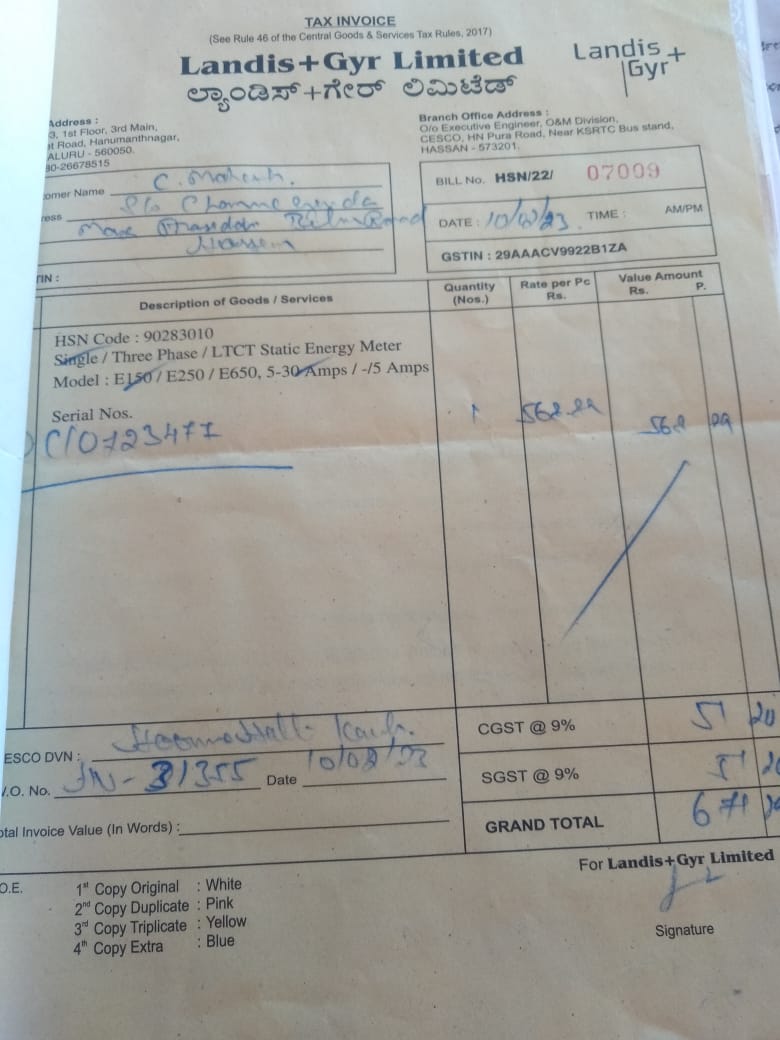 TAX INVOICE
(See Rule 46 of the Central Goods & Services Tax Rules, 2017)
Landis+Gyr Limited
ಲ್ಯಾಂಡಿಸ್+ಗೇರ್ ಲಿಮಿಟೆಡ್
Landis+
Gyr
Address :
3, 1st Floor, 3rd Main,
t Road, Hanumanthnagar,
ALURU - 560050.
80-26678515
Branch Office Address :
O/o Executive Engineer, O&M Division,
CESCO, HN Pura Road, Near KSRTC Bus stand,
HASSAN - 573201.
omer Name C.
ress S/o
Road
BILL No. HSN/22/ 07009
DATE : 10/ /23 TIME : AM/PM
GSTIN : 29AAACV9922B1ZA
TIN :
Description of Goods / Services Quantity (Nos.) Rate per Pc Rs. Value Amount Rs. P.
HSN Code : 90283010
Single / Three Phase / LTCT Static Energy Meter
Model : E150 / E250 / E650, 5-30 Amps / -/5 Amps
Serial Nos.
1 568
CGST @ 9% 51 20
ESCO DVN :
SGST @ 9% 51 20
.O. No. Date
GRAND TOTAL 671
otal Invoice Value (In Words) :
For Landis+Gyr Limited
O.E.
1st Copy Original : White
2nd Copy Duplicate : Pink
3rd Copy Triplicate : Yellow
4th Copy Extra : Blue
Signature